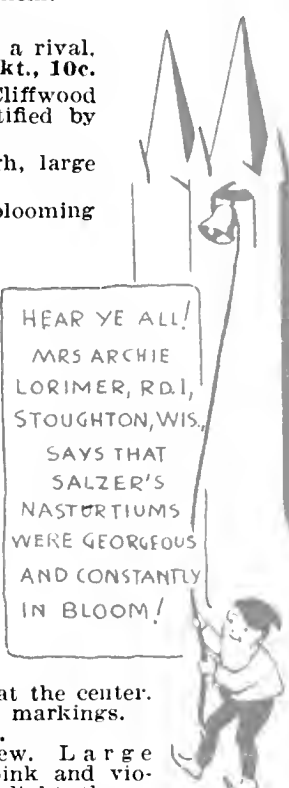 a rival.
kt., 10c.
Cliffwood
tified by
h, large
blooming
HEAR YE ALL!
MRS ARCHIE
LORIMER, RD.1,
STOUGHTON, WIS.,
SAYS THAT
SALZER'S
NASTURTIUMS
WERE GEORGEOUS
AND CONSTANTLY
IN BLOOM!
at the center.
markings.
ew. Large
pink and vio-